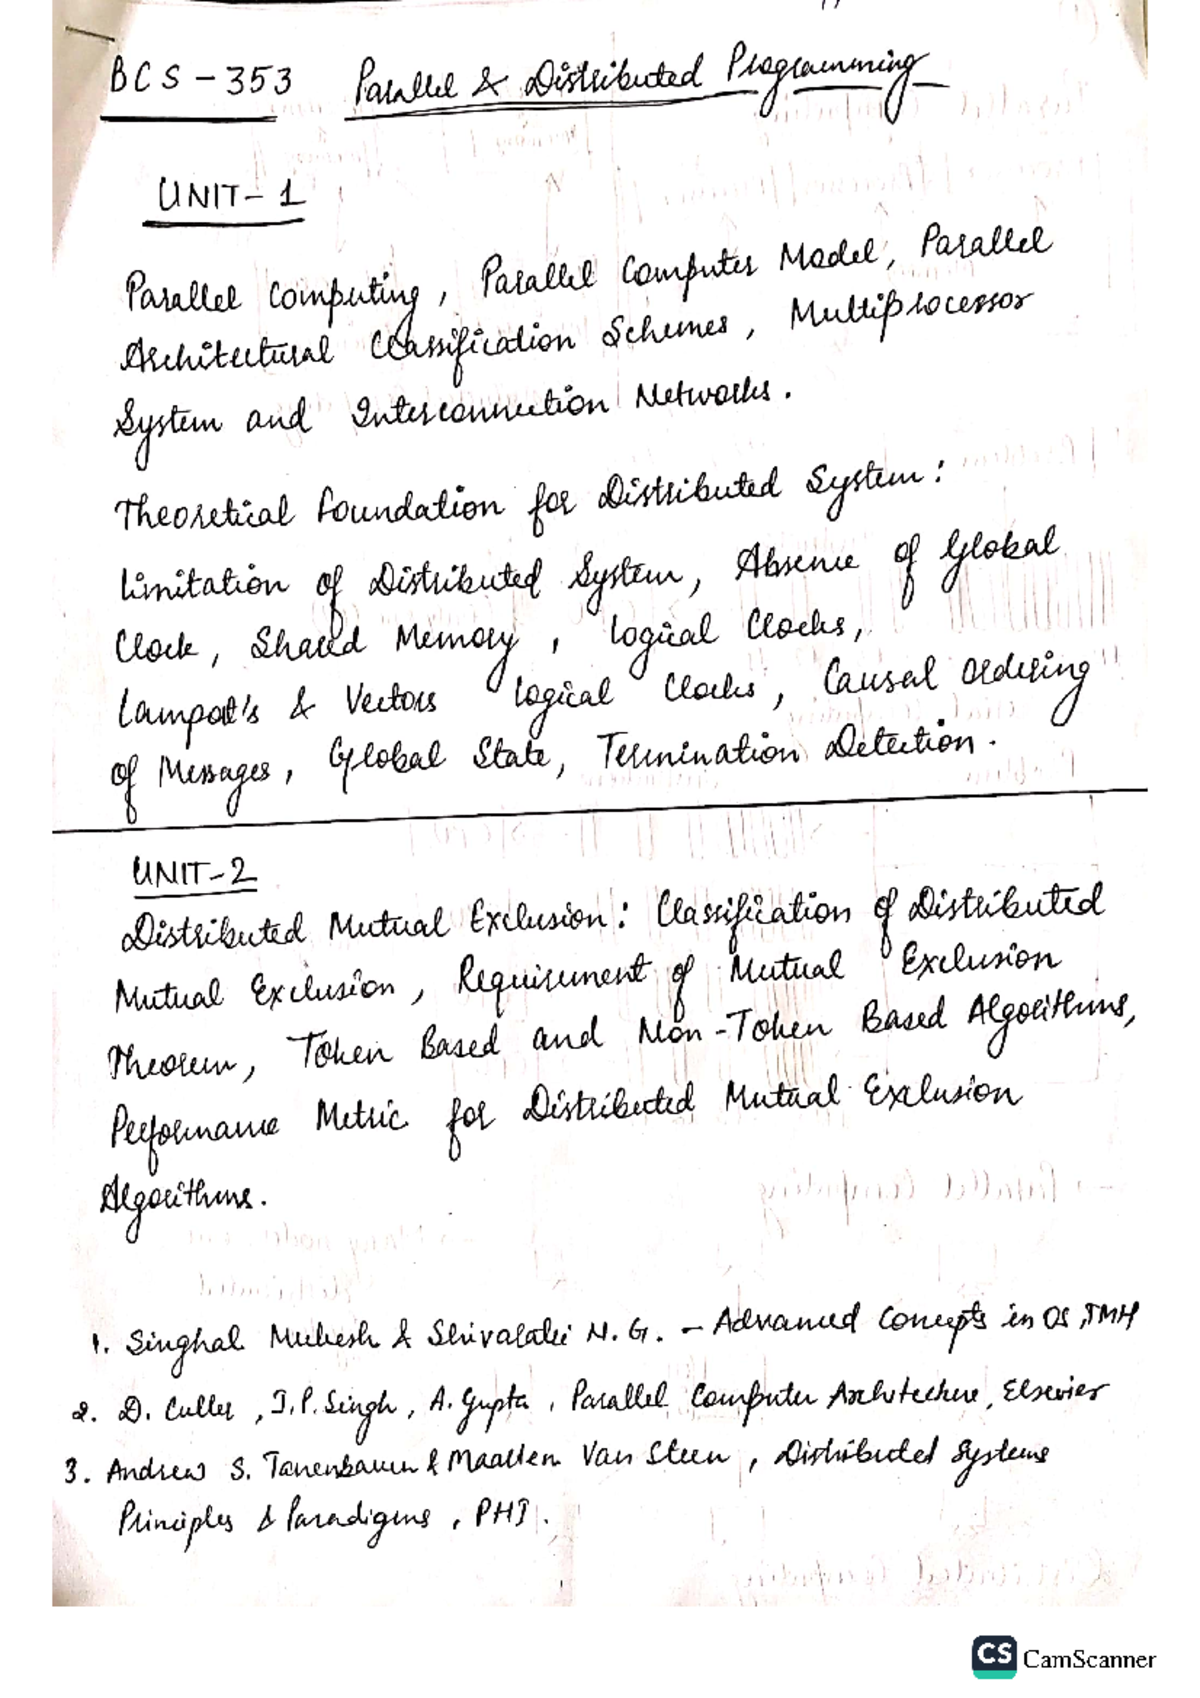 BCS-353 Parallel & Distributed Programming
UNIT-1
Parallel Computing, Parallel Computer Model, Parallel
Architectural Classification Schemes, Multiprocessor
System and Interconnection Networks.
Theoretical Foundation for Distributed System:
Limitation of Distributed System, Absence of Global
Clock, Shared Memory, Logical Clocks,
Lamport's & Vectors Logical Clocks, Causal Ordering
of Messages, Global State, Termination Detection.
UNIT-2
Distributed Mutual Exclusion: Classification of Distributed
Mutual Exclusion, Requirement of Mutual Exclusion
Theorem, Token Based and Non-Token Based Algorithms,
Performance Metric for Distributed Mutual Exclusion
Algorithms.
1. Singhal Mukesh & Shivaratri N.G. - Advanced Concepts in OS, TMH
2. D. Culler, J.P. Singh, A. Gupta, Parallel Computer Architecture, Elsevier
3. Andrew S. Tanenbaum & Maarten Van Steen, Distributed Systems
Principles & Paradigms, PHI.
CS CamScanner